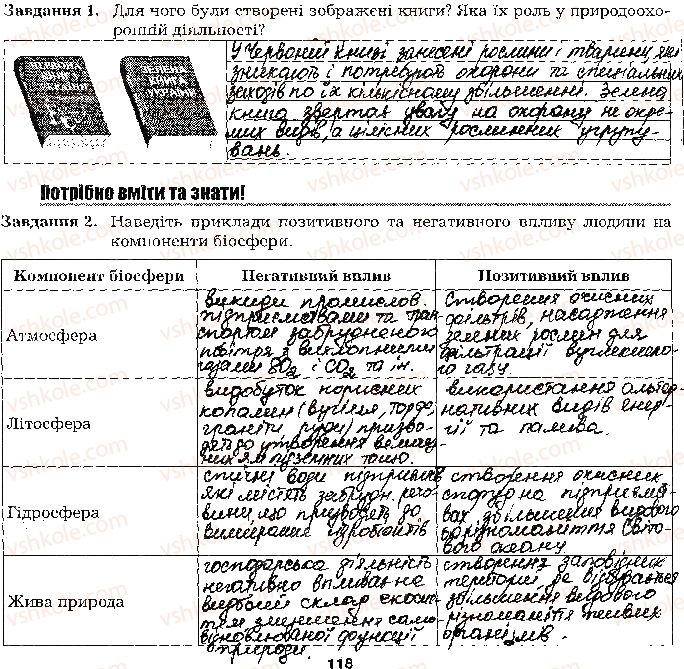 Завдання 1. Для чого були створені зображені книги? Яка їх роль у природоохо-
ронній діяльності?
ЧЕРВОНА КНИГА УКРАЇНИ
ЗЕЛЕНА КНИГА УКРАЇНИ
У Червоній книзі занесені рослини і тварини, які
зникають і потребують охорони та спеціальних
заходів по їх кількісному збільшенні. Зелена
книга звертає увагу на охорону не окре-
мих видів, а цілісних рослинних угрупу-
вань.
Потрібно вміти та знати!
Завдання 2. Наведіть приклади позитивного та негативного впливу людини на
компоненти біосфери.
Компонент біосфери Негативний вплив Позитивний вплив
Атмосфера
викиди промислов.
підприємствами та тран
спортом забрудненого
повітря з вихлопними
газами SO2 і CO2 та ін.
Створення очисних
фільтрів, насадження
зелених рослин для
фільтрації вуглекисло-
го газу.
Літосфера
видобуток корисних
копалин (вугілля, торфу,
граніту, руди) призво-
дить до утворення
підземних
використання альтер-
нативних видів енер-
гії та палива.
Гідросфера
стічні води підприємств
які містять забрудн. речо-
вини, що призводять до
вимирання гідробіонтів
створення очисних
споруд на підприємст-
вах, збільшення видового
різноманіття світо-
вого океану
Жива природа
господарська діяльність
негативно впливає на
видовий склад екосис-
тем зменшення само-
відновлюваної функції
природи.
створення заповідних
територій, де відбувається
збільшення видового
різноманіття живих
організмів.
118
vshkole.com